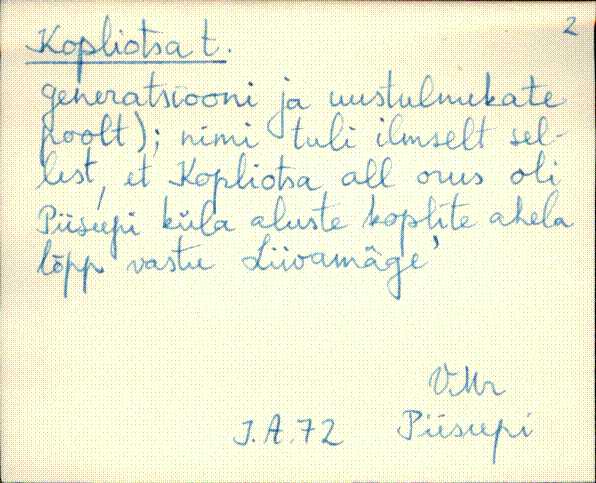 2
Kopliotsa t.
generatsiooni ja uustulnukate
poolt); nimi tuli ilmselt sel-
lest, et Kopliotsa all orus oli
Piisupi küla aluste koplite ahela
lõpp vastu Liivamäge'
V.Mr
J.A.72 Piisupi